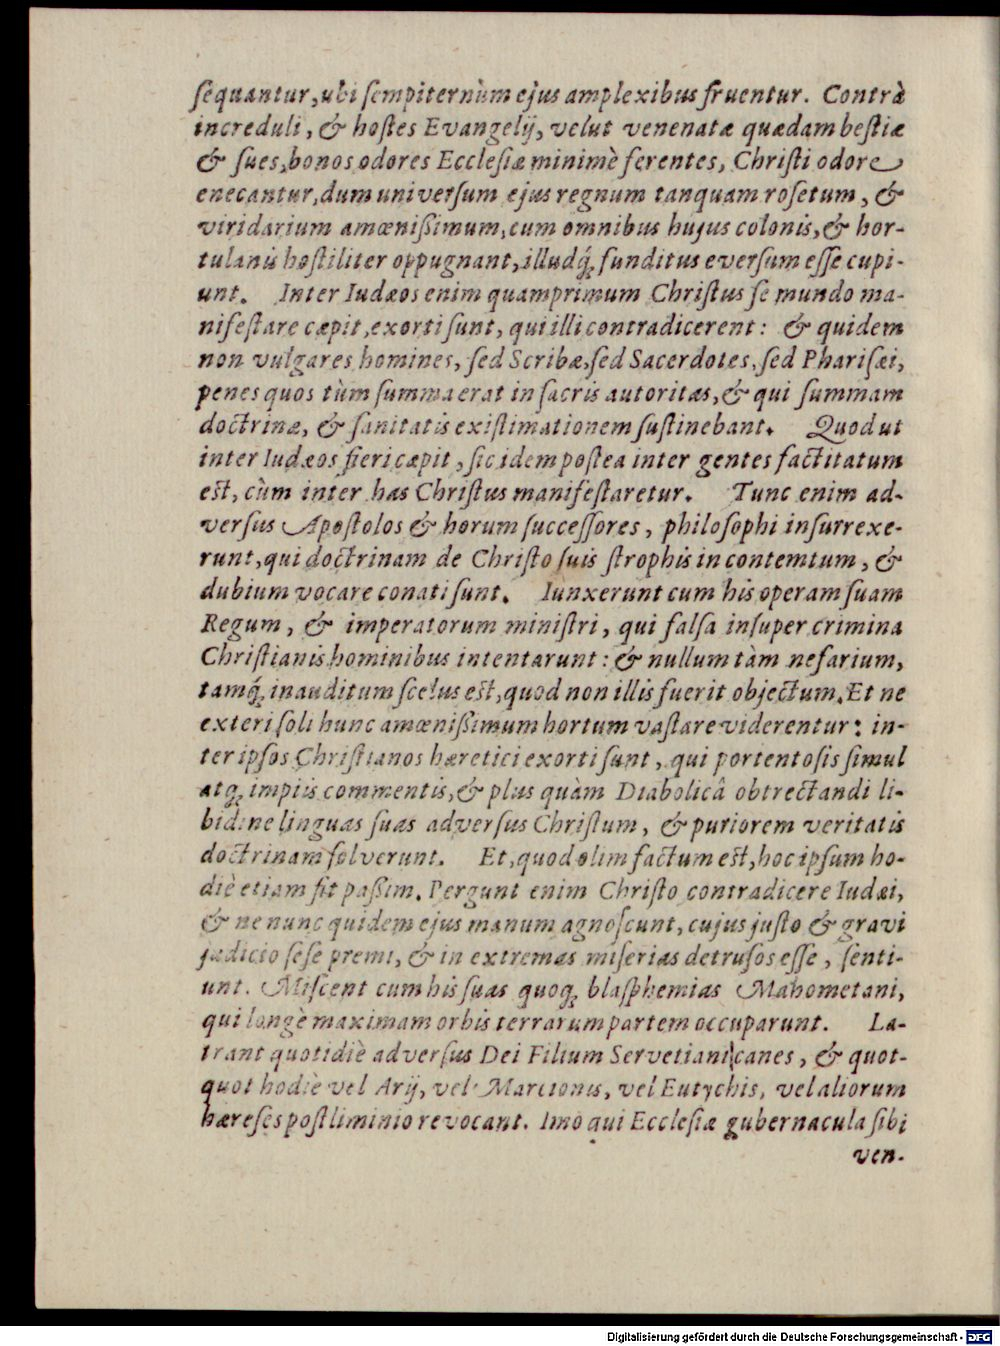 ſequantur, ubi ſempiternùm ejus amplexibus fruentur. Contrà
increduli, & hoſtes Evangelij, velut venenatæ quædam beſtiæ
& ſues, bonos odores Eccleſiæ minimè ferentes, Chriſti odore
enecantur, dum univerſum ejus regnum tanquam roſetum, &
viridarium amœnißimum, cum omnibus hujus colonis, & hor-
tulanis hoſtiliter oppugnant, illudq́; funditus everſum eſſe cupi-
unt. Inter Iudæos enim quamprimum Chriſtus ſe mundo ma-
nifeſtare cæpit, exorti ſunt, qui illi contradicerent: & quidem
non vulgares homines, ſed Scribæ, ſed Sacerdotes, ſed Phariſæi,
penes quos tùm ſumma erat in ſacris autoritas, & qui ſummam
doctrinæ, & ſanitatis exiſtimationem ſuſtinebant. Quod ut
inter Iudæos fieri cæpit, ſic idem poſtea inter gentes factitatum
eſt, cùm inter has Chriſtus manifeſtaretur. Tunc enim ad-
verſus Apoſtolos & horum ſucceſſores, philoſophi inſurrexe-
runt, qui doctrinam de Chriſto ſuis ſtrophis in contemtum, &
dubium vocare conati ſunt. Iunxerunt cum his operam ſuam
Regum, & imperatorum miniſtri, qui falſa inſuper crimina
Chriſtianis hominibus intentarunt: & nullum tàm nefarium,
tamq́; inauditum ſcelus eſt, quod non illis fuerit objectum. Et ne
exteri ſoli hunc amœnißimum hortum vaſtare viderentur: in-
ter ipſos Chriſtianos hæretici exorti ſunt, qui portentoſis ſimul
atq; impiis commentis, & plus quàm Diabolicâ obtrectandi li-
bidine linguas ſuas adverſus Chriſtum, & puriorem veritatis
doctrinam ſolverunt. Et, quod olim factum eſt, hoc ipſum ho-
diè etiam fit paßim. Pergunt enim Chriſto contradicere Iudæi,
& ne nunc quidem ejus manum agnoſcunt, cujus juſto & gravi
judicio ſeſe premi, & in extremas miſerias detruſos eſſe, ſenti-
unt. Miſcent cum his ſuas quoq; blaſphemias Mahometani,
qui longè maximam orbis terrarum partem occuparunt. La-
trant quotidiè adverſus Dei Filium Servetiani canes, & quot-
quot hodiè vel Arij, vel Marcionis, vel Eutychis, vel aliorum
hæreſes poſtliminio revocant. Imò qui Eccleſiæ gubernacula ſibi
ven-
Digitalisierung gefördert durch die Deutsche Forschungsgemeinschaft - DFG